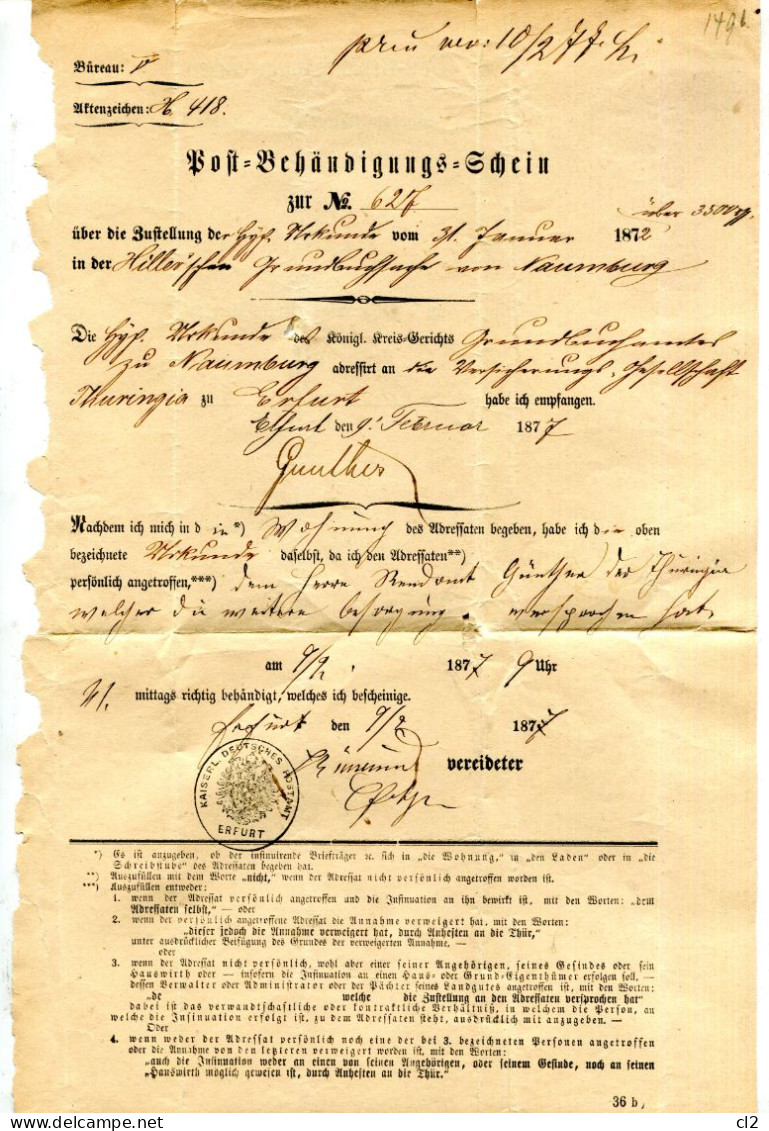 149b.
10/2 77.
Büreau: V
Aktenzeichen: H. 418.
Post-Behändigungs-Schein
zur No. 627
über 3500
über die Zustellung der Hyp. Urkunde vom 31. Januar 1872
in der Hiller'schen Grundbuchsache von Naumburg
Die Hyp. Urkunde des Königl. Kreis-Gerichts Grundbuchamtes
zu Naumburg adressirt an die Versicherungs-Gesellschaft
Thuringia zu Erfurt habe ich empfangen.
Erfurt den 9. Februar 1877
Günther
Nachdem ich mich in d ie *) Wohnung des Adressaten begeben, habe ich die oben
bezeichnete Urkunde daselbst, da ich den Adressaten**)
persönlich angetroffen,***) dem Herrn Rendant Günther der Thuringia
welcher die weitere Besorgung versprochen hat
am 9/2. 1877 9 Uhr
mittags richtig behändigt, welches ich bescheinige.
Erfurt den 9/2 1877
vereideter
KAISERL. DEUTSCHES POSTAMT
ERFURT
*) Es ist anzugeben, ob der insinuirende Briefträger ꝛc. sich in „die Wohnung," in „den Laden" oder in „die
Schreibstube" des Adressaten begeben hat.
**) Auszufüllen mit dem Worte „nicht," wenn der Adressat nicht persönlich angetroffen worden ist.
***) Auszufüllen entweder:
1. wenn der Adressat persönlich angetroffen und die Insinuation an ihn bewirkt ist, mit den Worten: „dem
Adressaten selbst," — oder
2. wenn der persönlich angetroffene Adressat die Annahme verweigert hat, mit den Worten:
„dieser jedoch die Annahme verweigert hat, durch Anheften an die Thür,"
unter ausdrücklicher Beifügung des Grundes der verweigerten Annahme, —
oder
3. wenn der Adressat nicht persönlich, wohl aber einer seiner Angehörigen, seines Gesindes oder sein
Hauswirth oder — insofern die Insinuation an einen Haus- oder Grund-Eigenthümer erfolgen soll, —
dessen Verwalter oder Administrator oder der Pächter seines Landgutes angetroffen ist, mit den Worten:
„de welche die Zustellung an den Adressaten versprochen hat"
dabei ist das verwandtschaftliche oder kontraktliche Verhältniß, in welchem die Person, an
welche die Insinuation erfolgt ist, zu dem Adressaten steht, ausdrücklich mit anzugeben. —
Oder
4. wenn weder der Adressat persönlich noch eine der bei 3. bezeichneten Personen angetroffen
oder die Annahme von den letzteren verweigert worden ist, mit den Worten:
„auch die Insinuation weder an einen von seinen Angehörigen, oder seinem Gesinde, noch an seinen
„Hauswirth möglich gewesen ist, durch Anheften an die Thür."
36 b,
cl2